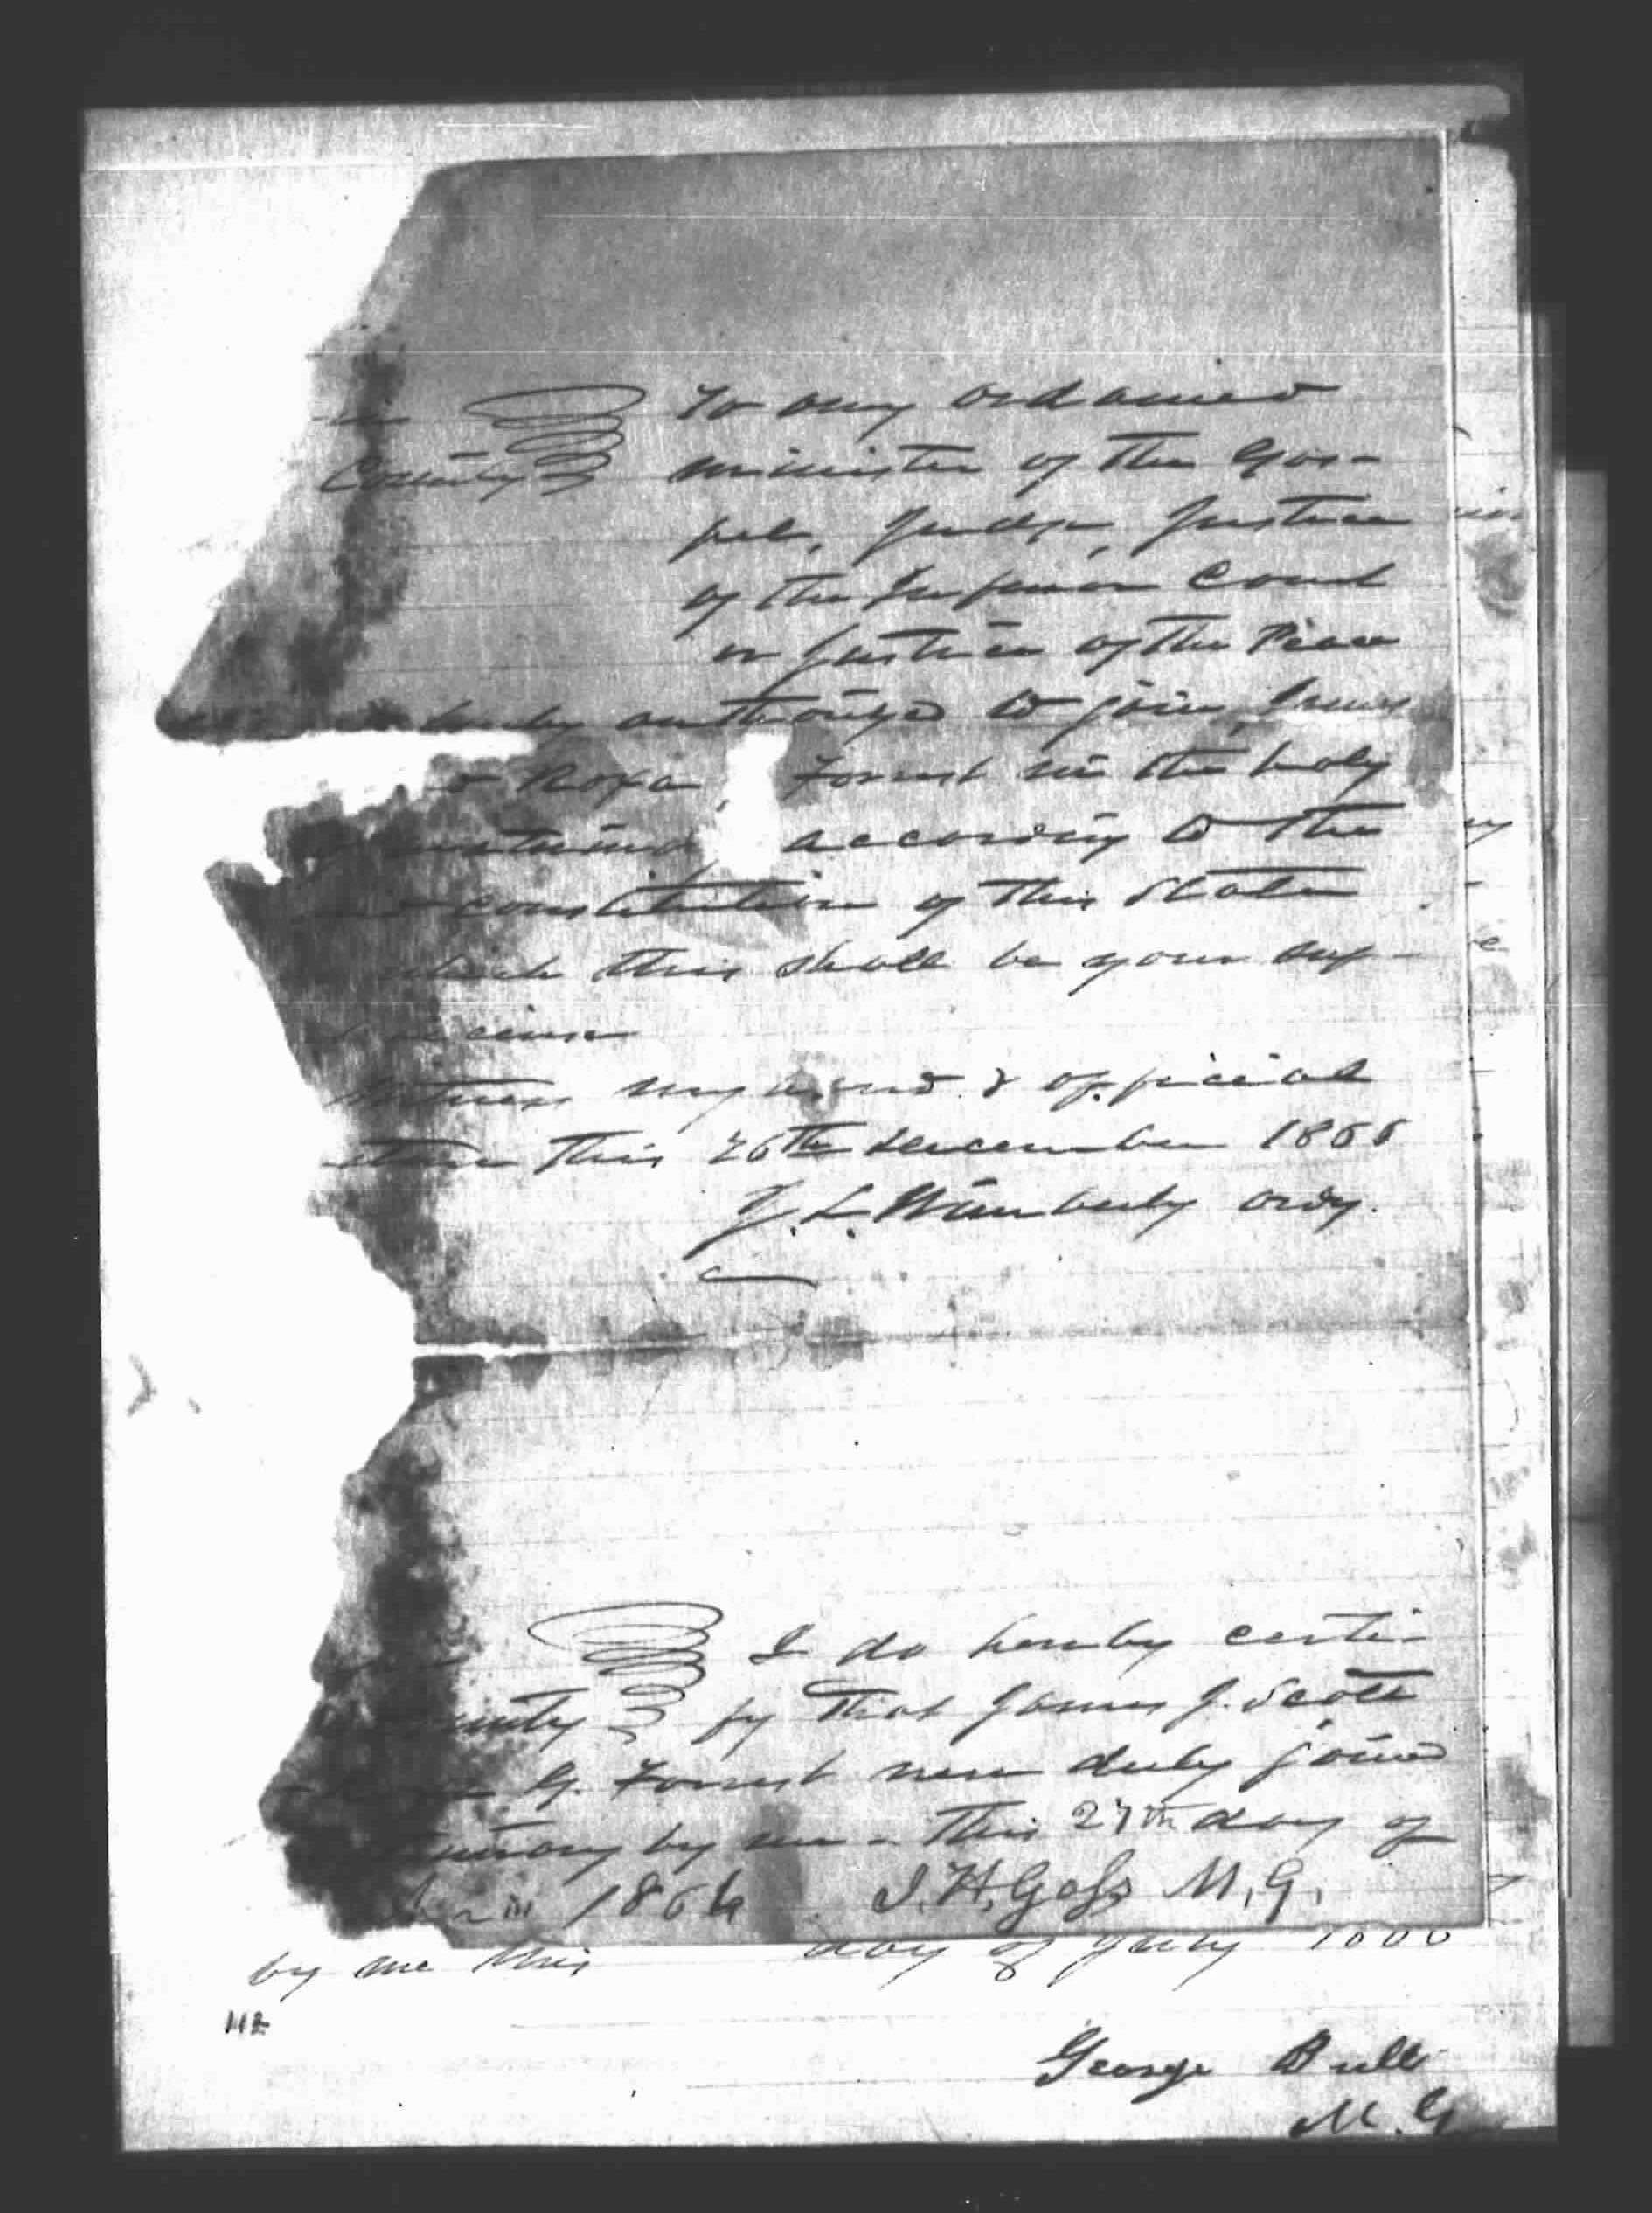 To any ordained
County minister of the Gos-
pel, Judge, Justice
of the Inferior Court
or Justice of the Peace
hereby authorized to join James
Roxa Forrest in the holy
according to the
constitution of this State
which this shall be your suf-
Witness my hand & official
this 26th December 1866
J. L. Wimberly ordy.
I do hereby certi-
unty fy that James J. Scott
G. Forrest were duly joined
by me - this 27th day of
1866 I. H. Goss M. G.
by me this day of July
112
George Bull
M. G